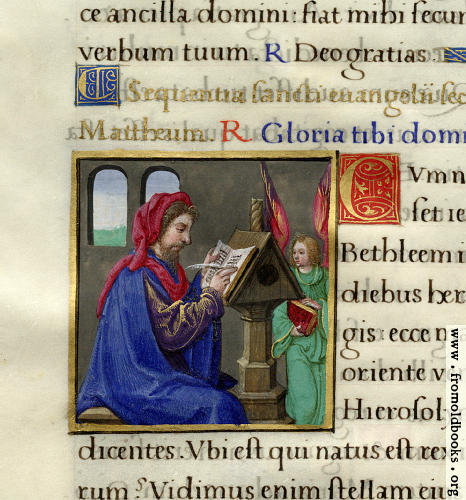 ce ancilla domini: fiat mibi secun
verbum tuum. R Deogratias.
Sequentia sancti euangelii sec
Mattheum. R Gloria tibi domi
CVmn
set ie
Bethleem i
diebus her
gis: ecce m
oriente v
Hierosol
dicentes. Vbi est qui natus est rex
rum? Vidimus enim stellam eiu
www.fromoldbooks.org